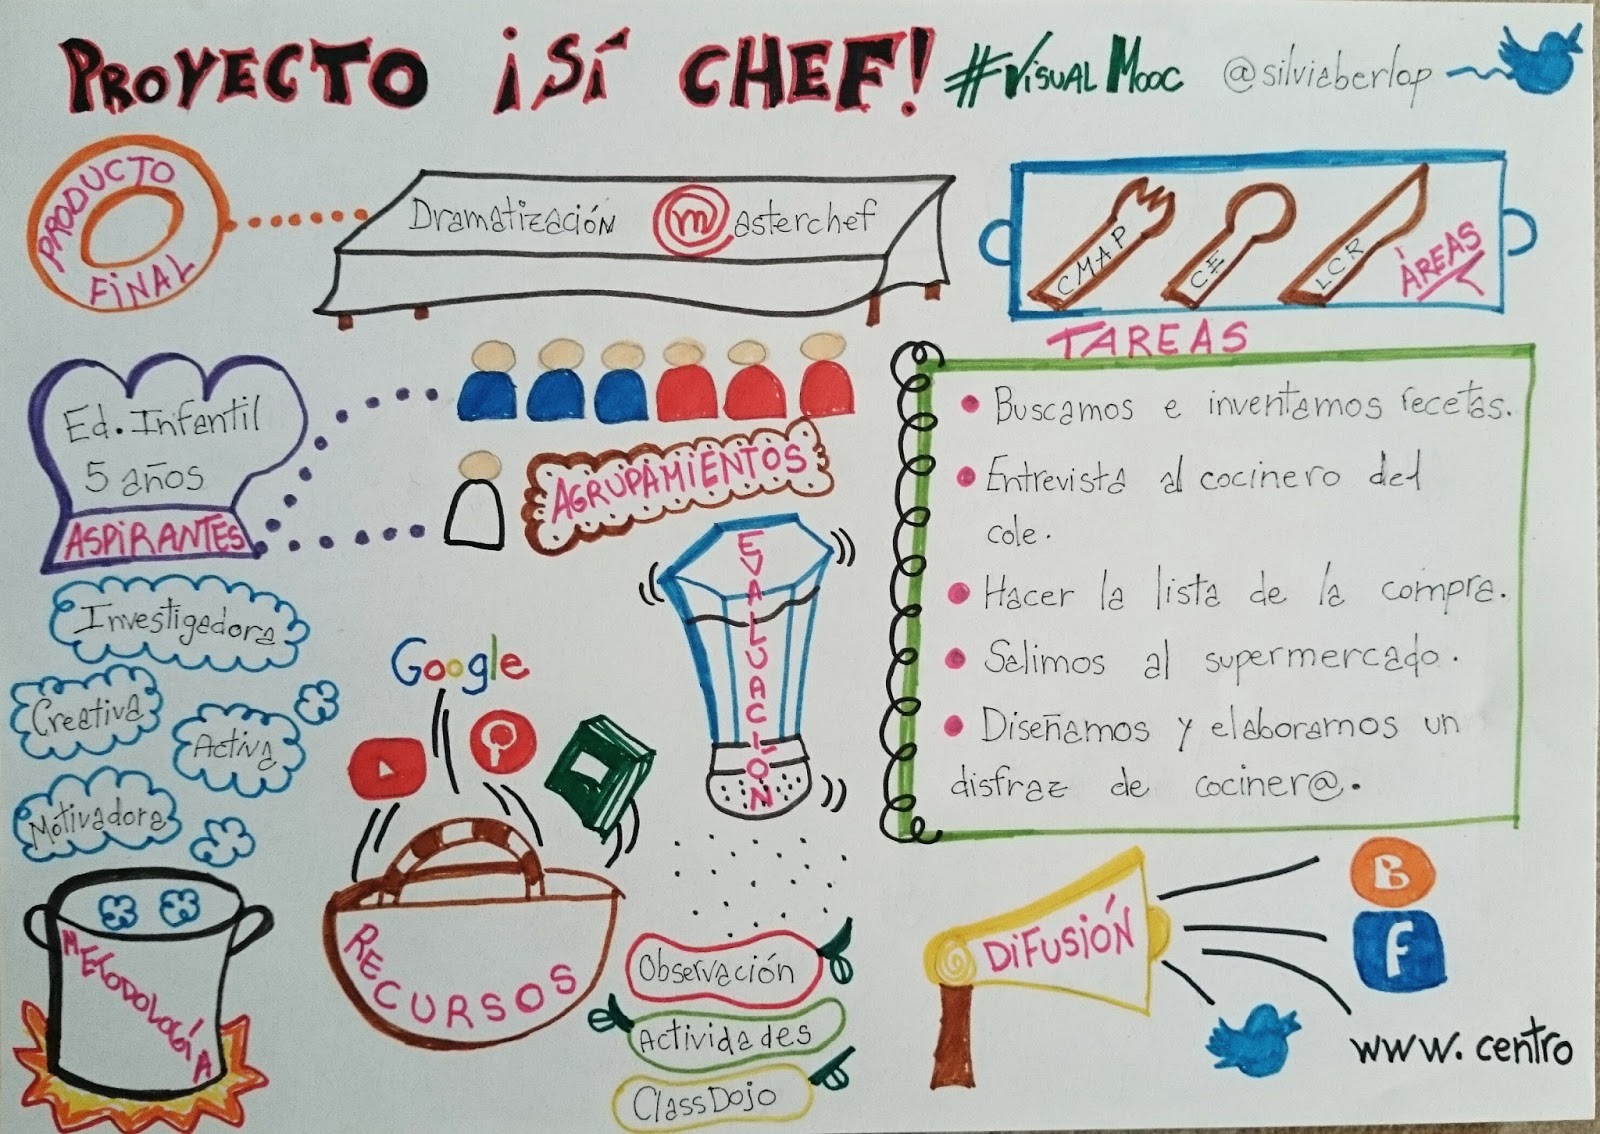 PROYECTO ¡SÍ CHEF! #VISUAL MOOC @silviaberlop
PRODUCTO FINAL
Dramatización masterchef
CMAP
CE
LCR
ÁREAS
Ed. Infantil
5 años
ASPIRANTES
AGRUPAMIENTOS
TAREAS
Buscamos e inventamos recetas.
Entrevista al cocinero del
cole.
Hacer la lista de la compra.
Salimos al supermercado.
Diseñamos y elaboramos un
disfraz de cociner@.
Investigadora
Creativa
Activa
Motivadora
METODOLOGÍA
Google
RECURSOS
EVALUACIÓN
Observación
Actividades
ClassDojo
DIFUSIÓN
B
F
www.centro